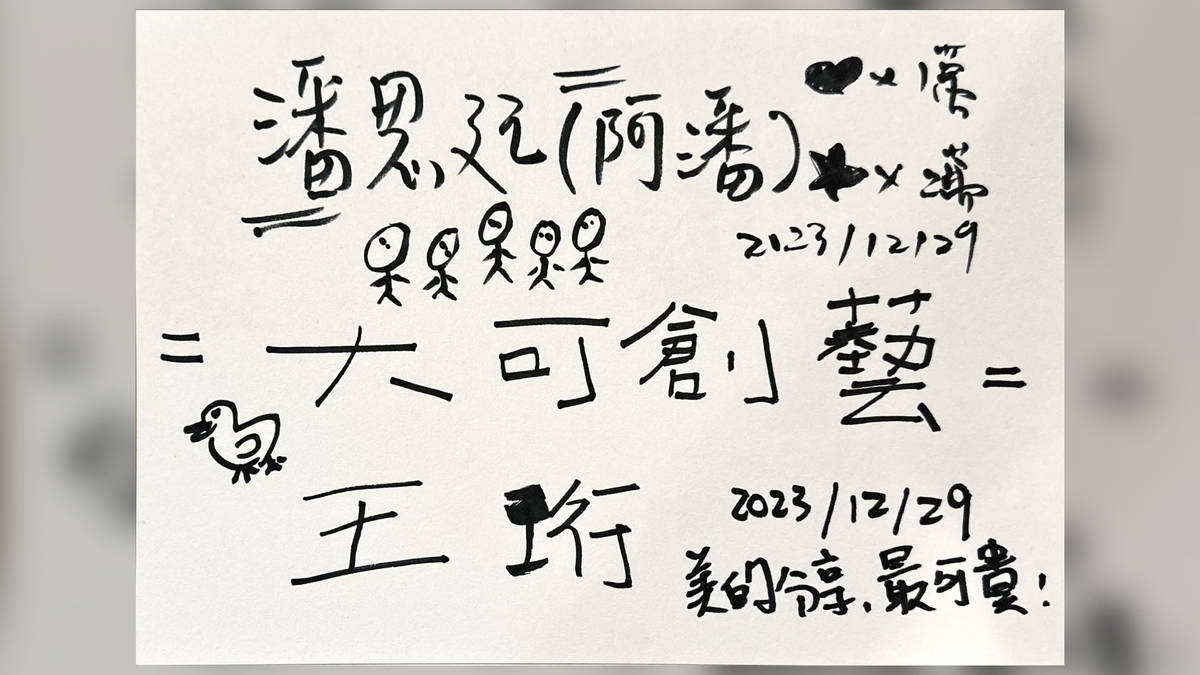 潘思 (阿潘)
2023/12/29
= 大可創藝 =
王珩
2023/12/29
美的分享、最可貴!